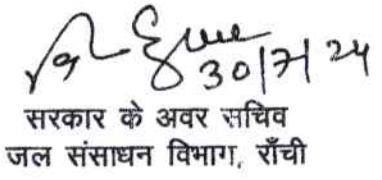 30/7/24
सरकार के अवर सचिव
जल संसाधन विभाग, राँची